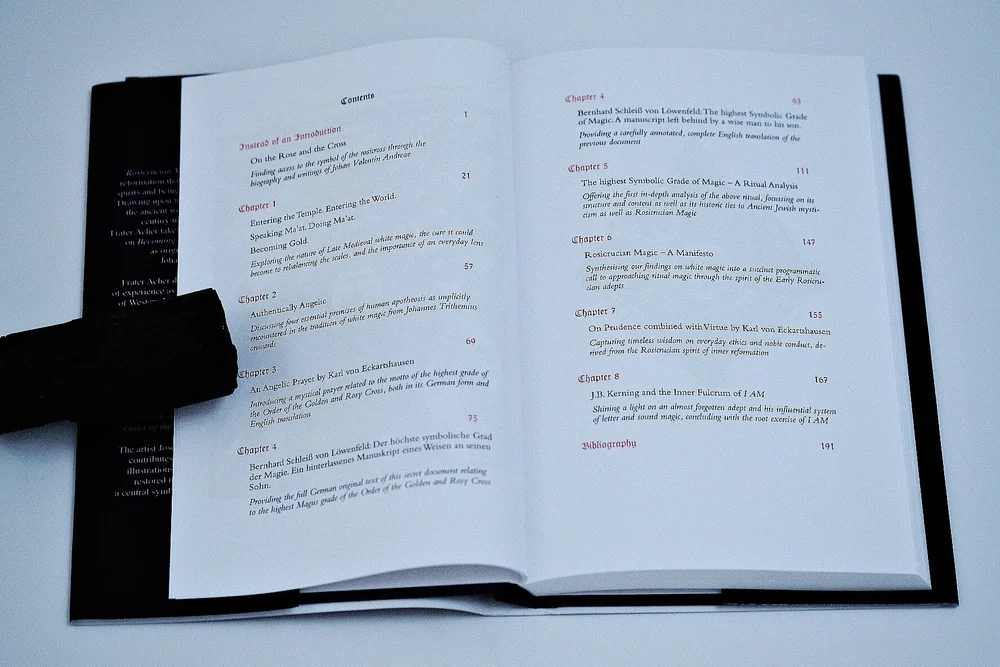 Contents
Instead of an Introduction 1
On the Rose and the Cross
Finding access to the symbol of the rosicross through the
biography and writings of Johan Valentin Andreae
Chapter 1 21
Entering the Temple. Entering the World.
Speaking Ma'at. Doing Ma'at.
Becoming Gold.
Exploring the nature of Late Medieval white magic, the cure it could
become to rebalancing the scales, and the importance of an everyday lens
Chapter 2 57
Authentically Angelic
Discussing four essential premises of human apotheosis as implicitly
encountered in the tradition of white magic from Johannes Trithemius
onwards
Chapter 3 69
An Angelic Prayer by Karl von Eckartshausen
Introducing a mystical prayer related to the motto of the highest grade of
the Order of the Golden and Rosy Cross, both in its German form and
English translation
Chapter 4 75
Bernhard Schleiß von Löwenfeld: Der höchste symbolische Grad
der Magie. Ein hinterlassenes Manuskript eines Weisen an seinen
Sohn.
Providing the full German original text of this secret document relating
to the highest Magus grade of the Order of the Golden and Rosy Cross
Chapter 4 93
Bernhard Schleiß von Löwenfeld: The highest Symbolic Grade
of Magic. A manuscript left behind by a wise man to his son.
Providing a carefully annotated, complete English translation of the
previous document
Chapter 5 111
The highest Symbolic Grade of Magic – A Ritual Analysis
Offering the first in-depth analysis of the above ritual, focussing on its
structure and content as well as its historic ties to Ancient Jewish mysti-
cism as well as Rosicrucian Magic
Chapter 6 147
Rosicrucian Magic – A Manifesto
Synthesising our findings on white magic into a succinct programmatic
call to approaching ritual magic through the spirit of the Early Rosicru-
cian adepts
Chapter 7 155
On Prudence combined with Virtue by Karl von Eckartshausen
Capturing timeless wisdom on everyday ethics and noble conduct, de-
rived from the Rosicrucian spirit of inner reformation
Chapter 8 167
J.B. Kerning and the Inner Fulcrum of I AM
Shining a light on an almost forgotten adept and his influential system
of letter and sound magic, concluding with the root exercise of I AM
Bibliography 191
Rosicrucian
reformation tha
spirits and being
Drawing upon
the ancient
century
Frater Acher take
on Becoming
as orig
Joha
Frater Acher
of experience as
of Western
Order of the
The artist Jos
contributes
illustrations
restored
a central syml